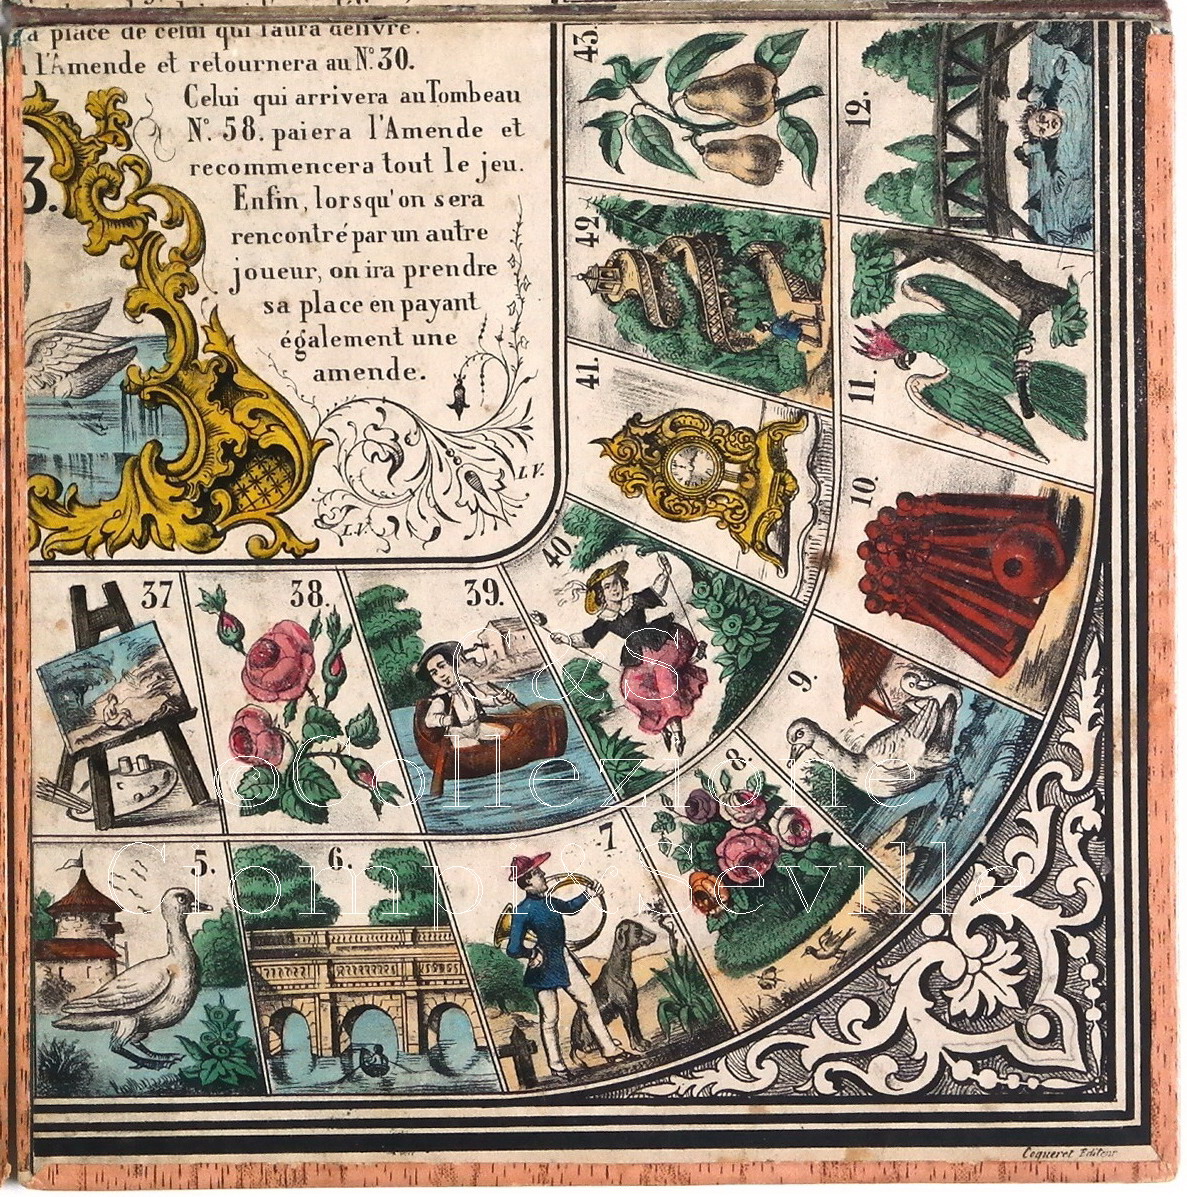 la place de celui qui l'aura délivré.
l'Amende et retournera au N° 30.
Celui qui arrivera au Tombeau
N° 58. paiera l'Amende et
recommencera tout le jeu.
Enfin, lorsqu'on sera
rencontré par un autre
joueur, on ira prendre
sa place en payant
également une
amende.
3.
L.V.
L.V.
43.
42
41.
40
39.
38.
37
12.
11.
10.
9.
8.
7
6.
5.
C&S
©Collezione
Ciompi&Seville
Coqueret Editeur